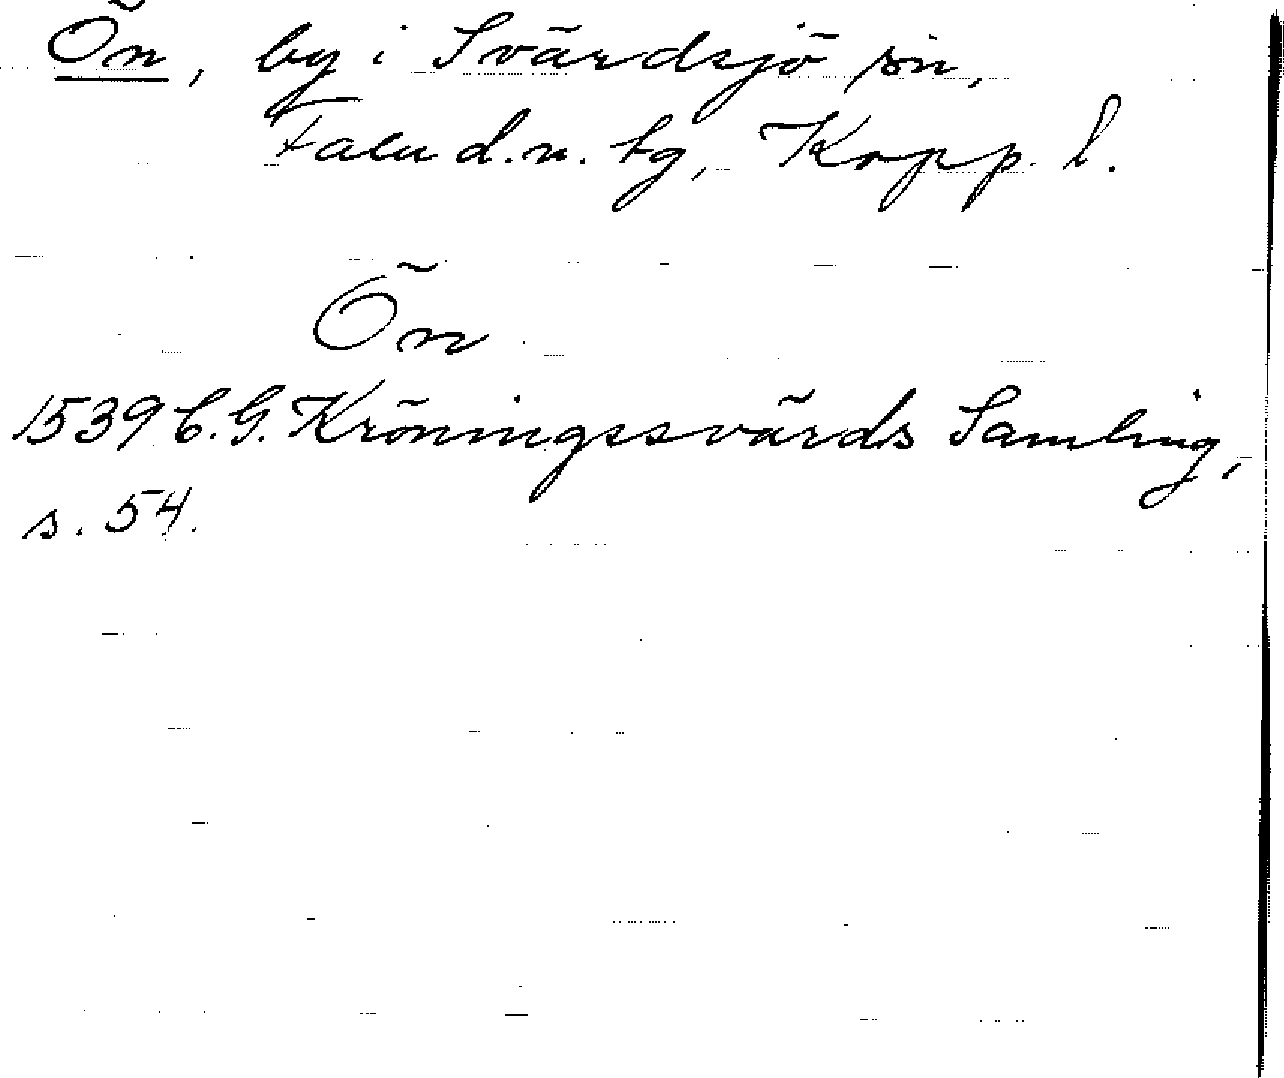 Ön, by i Svärdsjö sn,
Falu d.n. tg, Kopp. l.
Ön
1539 C.G. Kröningssvärds Samling,
s. 54.